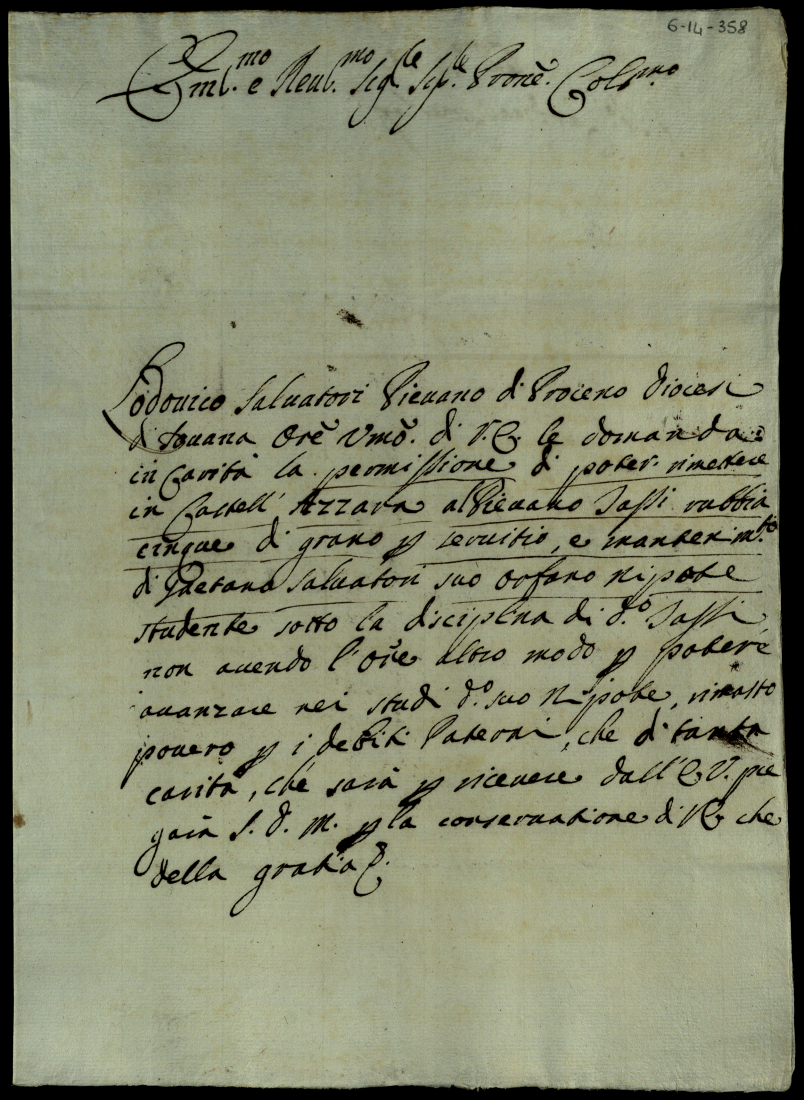 6-14-358
Em̃.mo e Reu.mo Sig.le Sig.le Pronẽ. Col.mo
Lodouico Saluatori Pieuano di Proceno Diocesi
di Souana Orẽ Vmõ. di V.E. le domanda
in Carità la permissione di poter rimettere
in Castell' Azzara al Pieuano Sassi rubbia
cinque di grano p seruitio, e mantenim.to
di Gaetano Saluatori suo orfano nipote
studente sotto la disciplina di d.o Sassi,
non auendo l'Orẽ altro modo p poterẽ
auanzare nei studi d.o suo Nipote, rimasto
pouero p i debiti Paterni, che di tanta
carità, che sarà p riceuere dall'E.V. pre
garà S. D. M. p la conseruatione di V.E. che
della gratia &.